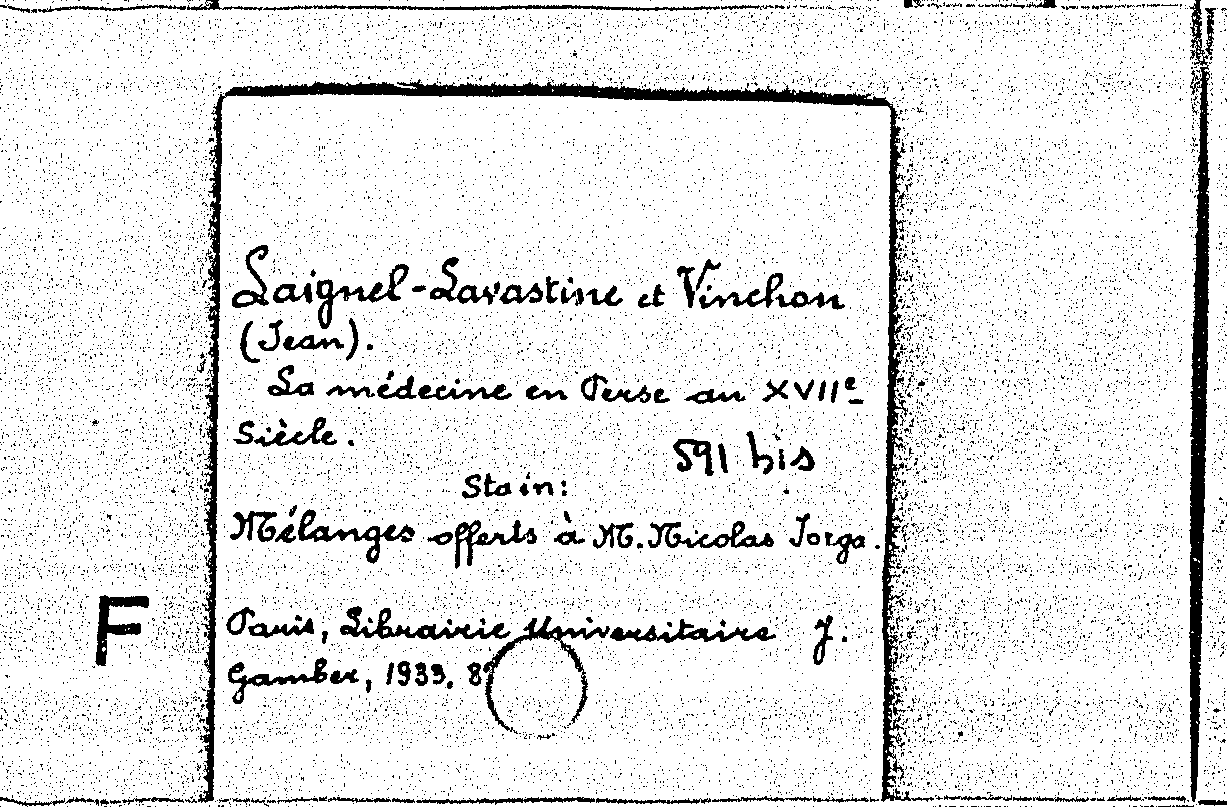 Laignel-Lavastine et Vinchon
(Jean).
La médecine en Perse au XVIIe
Siècle.
591 bis
Sta in:
Mélanges offerts à M. Nicolas Jorga.
F
Paris, Librairie Universitaire J.
Gamber, 1933. 8º